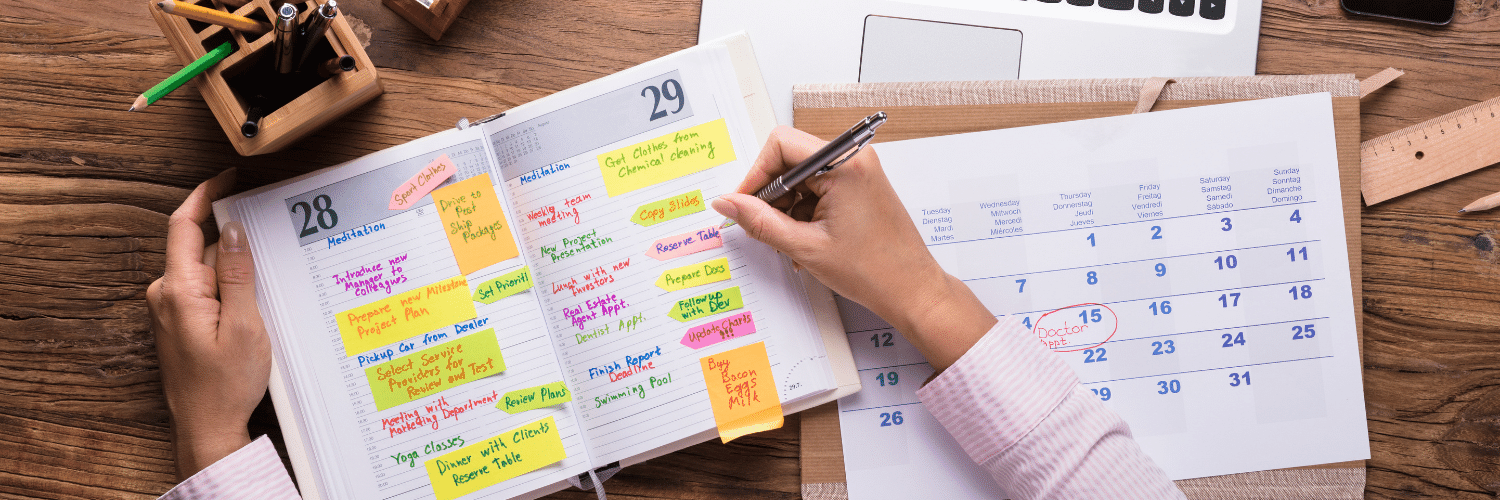 28
Sport Clothes
Drive to
Post
Ship
Packages
Meditation
Introduce new
Manager to
colleagues
Set Priority
Prepare new Milestone
Project Plan
Pickup Car from Dealer
Select Service
Providers for
Review and Test
Meeting with
Marketing Department
Review Plans
Yoga Classes
Dinner with Clients
Reserve Table
29
August
Meditation
Get Clothes from
Chemical cleaning
Weekly team
meeting
Copy Slides
New Project
Presentation
Reserve Table
Lunch with new
investors
Prepare Docs
Real Estate
Agent Appt.
Follow up
with Dev
Dentist Appt.
Update Charts
!!!
Finish Report
Deadline
Swimming Pool
Buy
Bacon
Eggs
Milk
Tuesday Wednesday Thursday Friday Saturday Sunday
Dienstag Mittwoch Donnerstag Freitag Samstag Sonntag
Mardi Mercredi Jeudi Vendredi Samedi Dimanche
Martes Miércoles Jueves Viernes Sábado Domingo
1 2 3 4
7 8 9 10 11
12 4 15 16 17 18
Doctor
Appt.
19 22 23 24 25
26 29 30 31